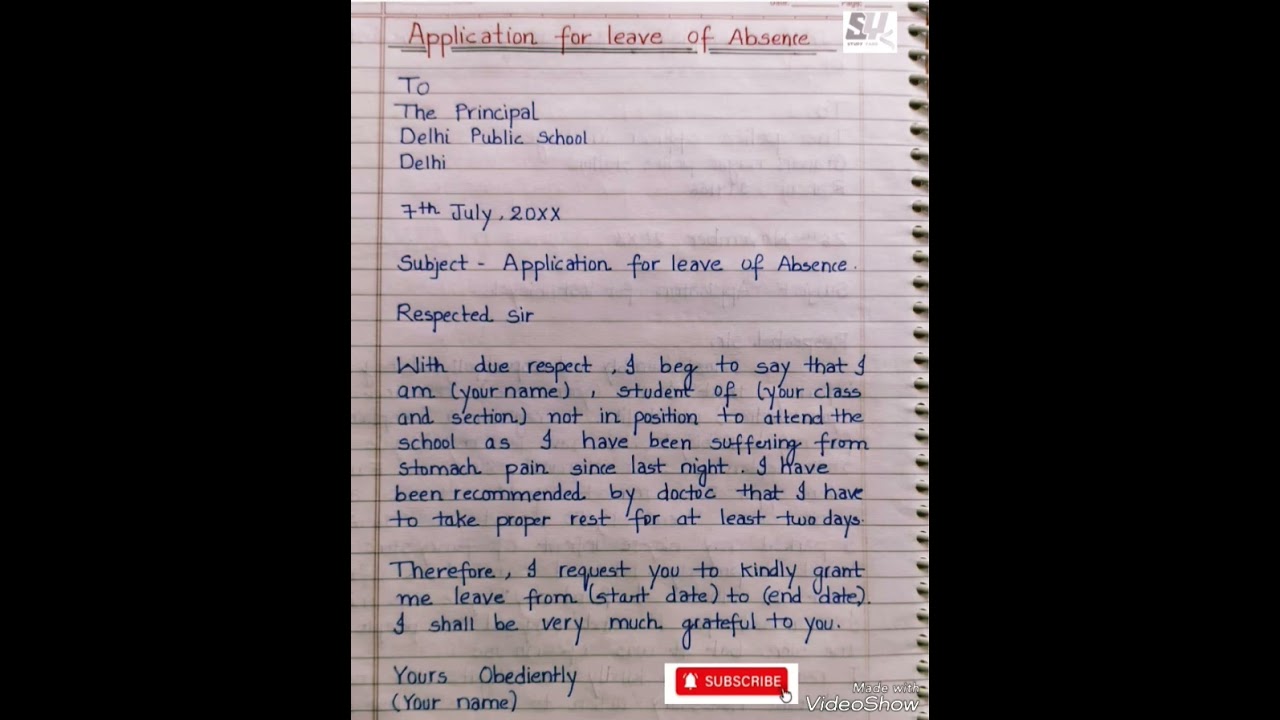 Date: Page:
Application for leave of Absence
SY
STUDY YARD
To
The Principal
Delhi Public School
Delhi
7th July, 20XX
Subject - Application for leave of Absence.
Respected Sir
With due respect, I beg to say that I
am (your name), student of (your class
and section) not in position to attend the
school as I have been suffering from
stomach pain since last night. I have
been recommended by doctoc that I have
to take proper rest for at least two days.
Therefore, I request you to kindly grant
me leave from (start date) to (end date).
I shall be very much grateful to you.
Yours Obediently
(Your name)
SUBSCRIBE
Made with
VideoShow